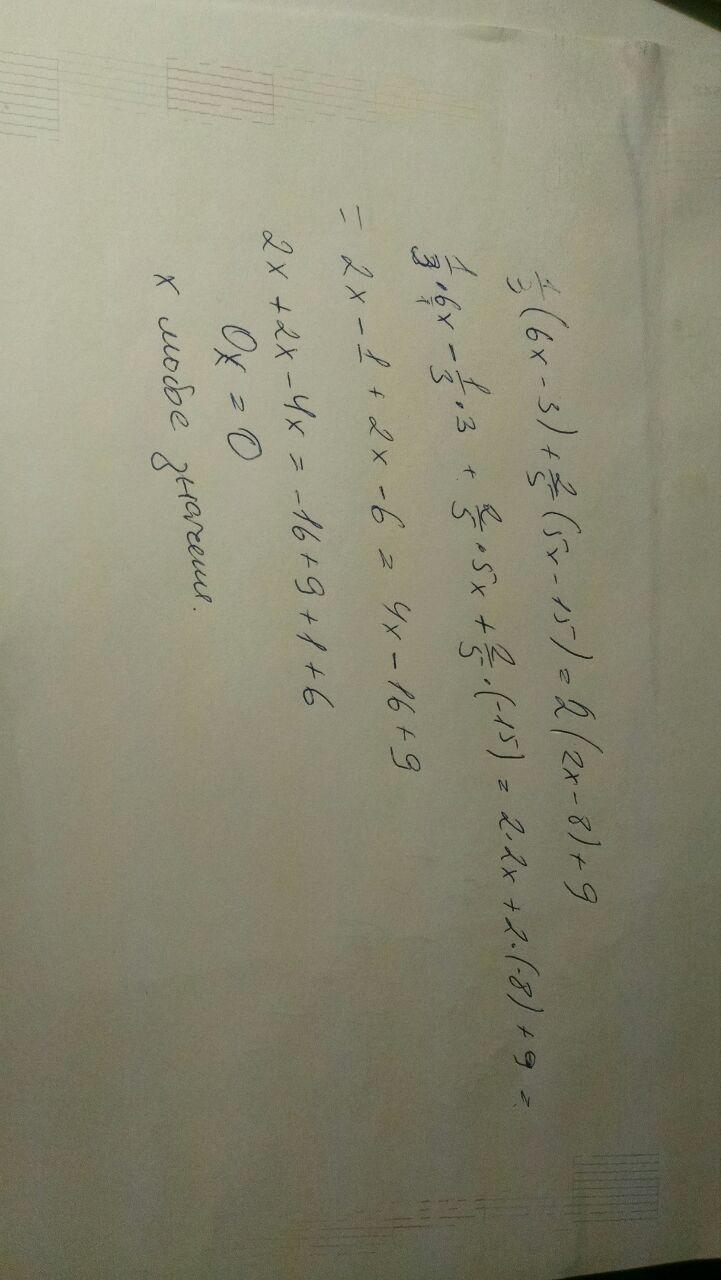 1/3 (6x - 3) + 2/5 (5x - 15) = 2(2x - 8) + 9
1/3 · 6x - 1/3 · 3 + 2/5 · 5x + 2/5 · (-15) = 2·2x + 2·(-8) + 9 =
= 2x - 1 + 2x - 6 = 4x - 16 + 9
2x + 2x - 4x = -16 + 9 + 1 + 6
0x = 0
x любое значение.